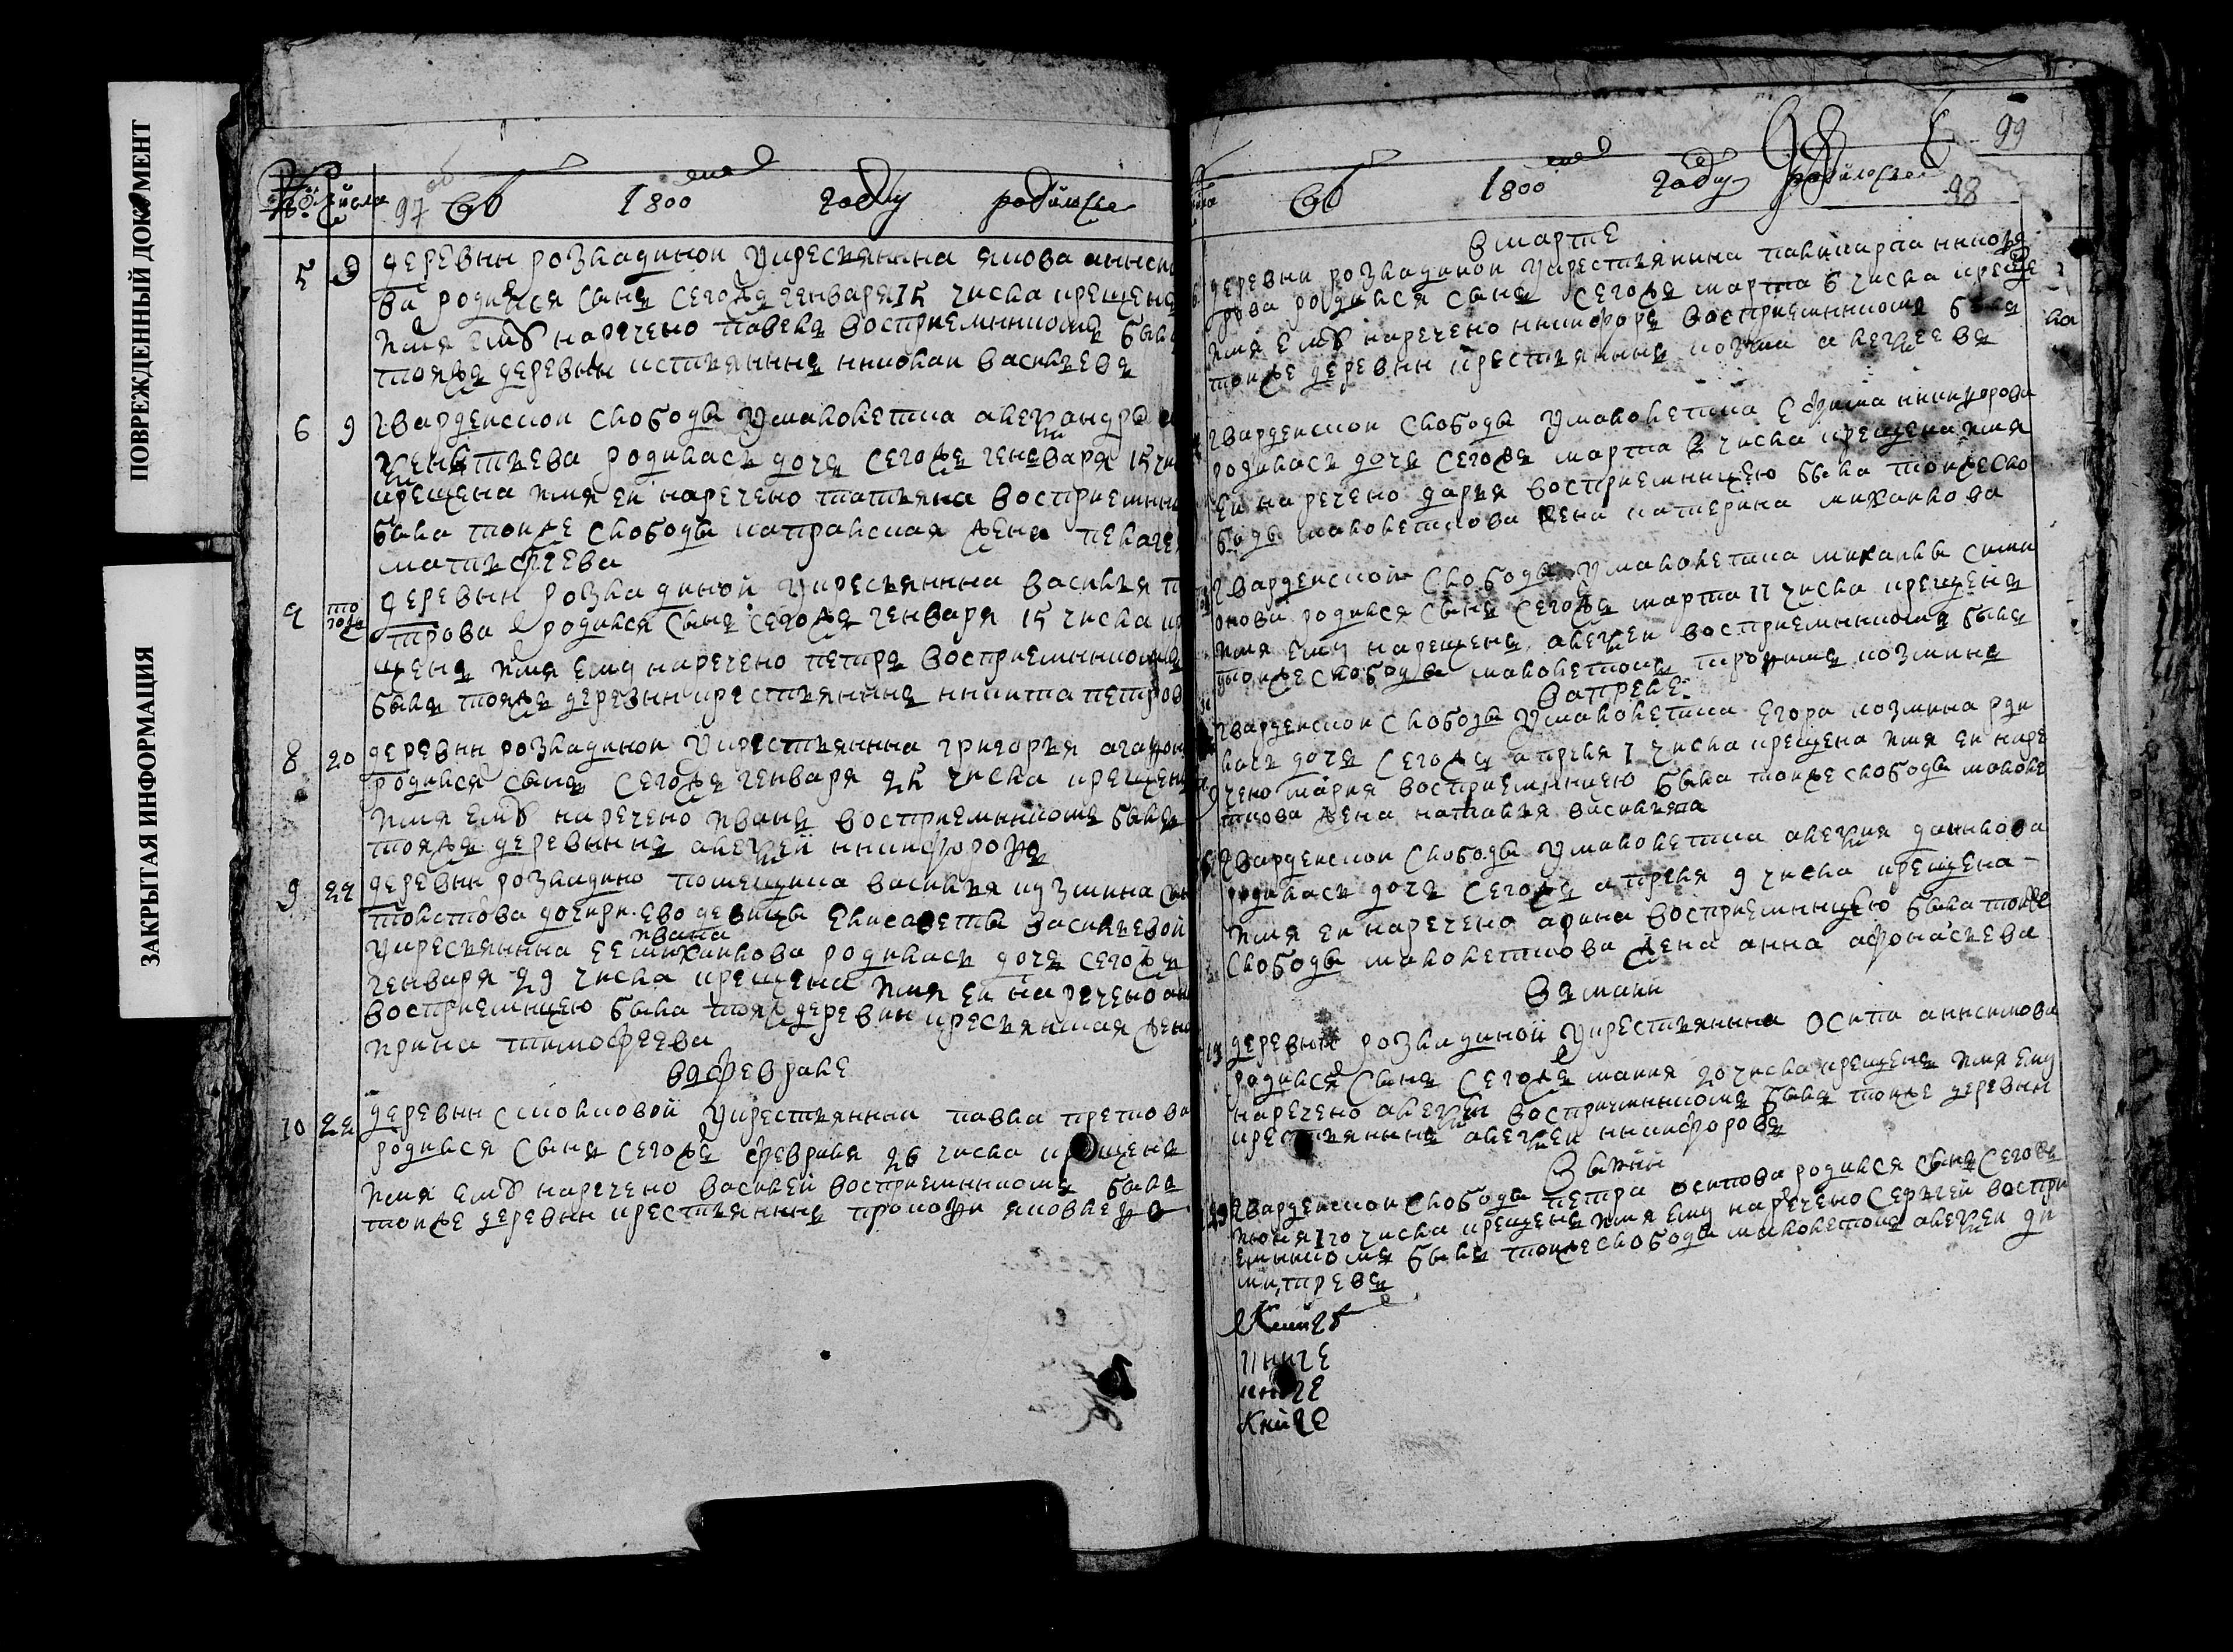 ПОВРЕЖДЕННЫЙ ДОКУМЕНТ
ЗАКРЫТАЯ ИНФОРМАЦИЯ
числа 97 об Въ 1800 году родилися
5 9 деревни розкладинои укрестьянина якова аниси
ва родился сынъ сегожъ генваря 15 числа крещенъ
имя ему наречено павелъ восприемникомъ былъ
тояжъ деревни истьянинъ николаи васильевъ
6 9 гварденскои слободы умалолетка алеѯандра
родиласъ дочъ сегожъ генъваря 15
крещена имя еи наречено татьяна восприемни
была тоижъ слободы капралская жена пелаге
матьвфеева
7 того жъ деревни розкладинои укресьянина василья пе
трова родился сынъ сегожъ генваря 15 числа кр
щенъ имя ему наречено петръ восприемникомъ
былъ тояжъ деревни крестьянинъ никита петров
8 20 деревни розкладинои укрестьянина григорья агафон
родился сынъ сегожъ генваря 25 числа крещенъ
имя ему наречено иванъ восприемникомъ былъ
тояжъ деревнинъ алеѯей никифоровъ
9 22 деревни розкладино помещика василья кузмина сы
толстова дочери ево девицы елисаветы васильевой
укресьянина ее ивана михаилова родиласъ дочъ сегожъ
генваря 29 числа крещена имя еи наречено
восприемницею была тояжъ деревни кресьянская жена
ирина тимофеева
въ феврале
10 22 деревни смолковой укрестьянина павла претова
родился сынъ сегожъ февраля 26 числа крещенъ
имя ему наречено василей восприемникомъ былъ
тоиже деревни крестьянинъ прокофи яковлевъ
98 99
Въ 1800 году родилися 98
в марте
деревни розкладинои укрестьянина паликарпа никофо
рова родился сынъ сегожъ марта 6 числа креще
имя ему наречено никифоръ восприемникомъ былъ
тоиже деревни крестьянинъ козма алеѯеевъ
гварденскои слободы умалолетка ефима никифорова
родиласъ дочъ сегоже марта числа крещена имя
еи наречено дарья восприемницею была тоижесло
боды малолеткова жена катерина михаилова
гварденской слободы умалолетка михаилы сими
онова родился сынъ сегожъ марта 11 числа крещенъ
имя ему нарещенъ алеѯеи восприемникомъ былъ
тоижеслободы малолетокъ трофимъ козминъ
в апреле
гварденскои слободы умалолетка егора козмина род
ласъ дочъ сегожъ апреля 7 числа крещена имя еи наре
чено мария восприемницею была тоиже слободы малоле
ткова жена наталья василева
гварденскои слободы умалолетка алеѯея данилова
родиласъ дочъ сегожъ апреля 9 числа крещена
имя еи наречено арина восприемницею была тоиже
слободы малолеткова жена анна афонасьева
въ маии
деревни розкладиной укрестьянина осипа анисимова
родился сынъ сегожъ маия 20 числа крещенъ имя ему
наречено алеѯеи восприемникомъ былъ тоиже деревни
крестьянинъ алеѯеи никифоровъ
гварденскои слободы петра осипова родился сынъ сегожъ
июня 1го числа крещенъ имя ему наречено сергей воспри
емникомъ былъ тоижеслободы малолетокъ алеѯеи дм
митревъ
книге
книге
книге